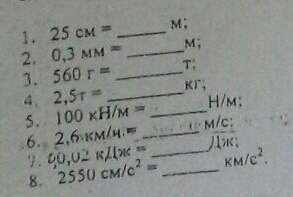 1. 25 см = ______ м;
2. 0,3 мм = ______ м;
3. 560 г = ______ т;
4. 2,5т = ______ кг;
5. 100 кН/м = ______ Н/м;
6. 2,6 км/ч = ______ м/с;
7. 0,02 кДж = ______ Дж;
8. 2550 см/с² = ______ км/с².